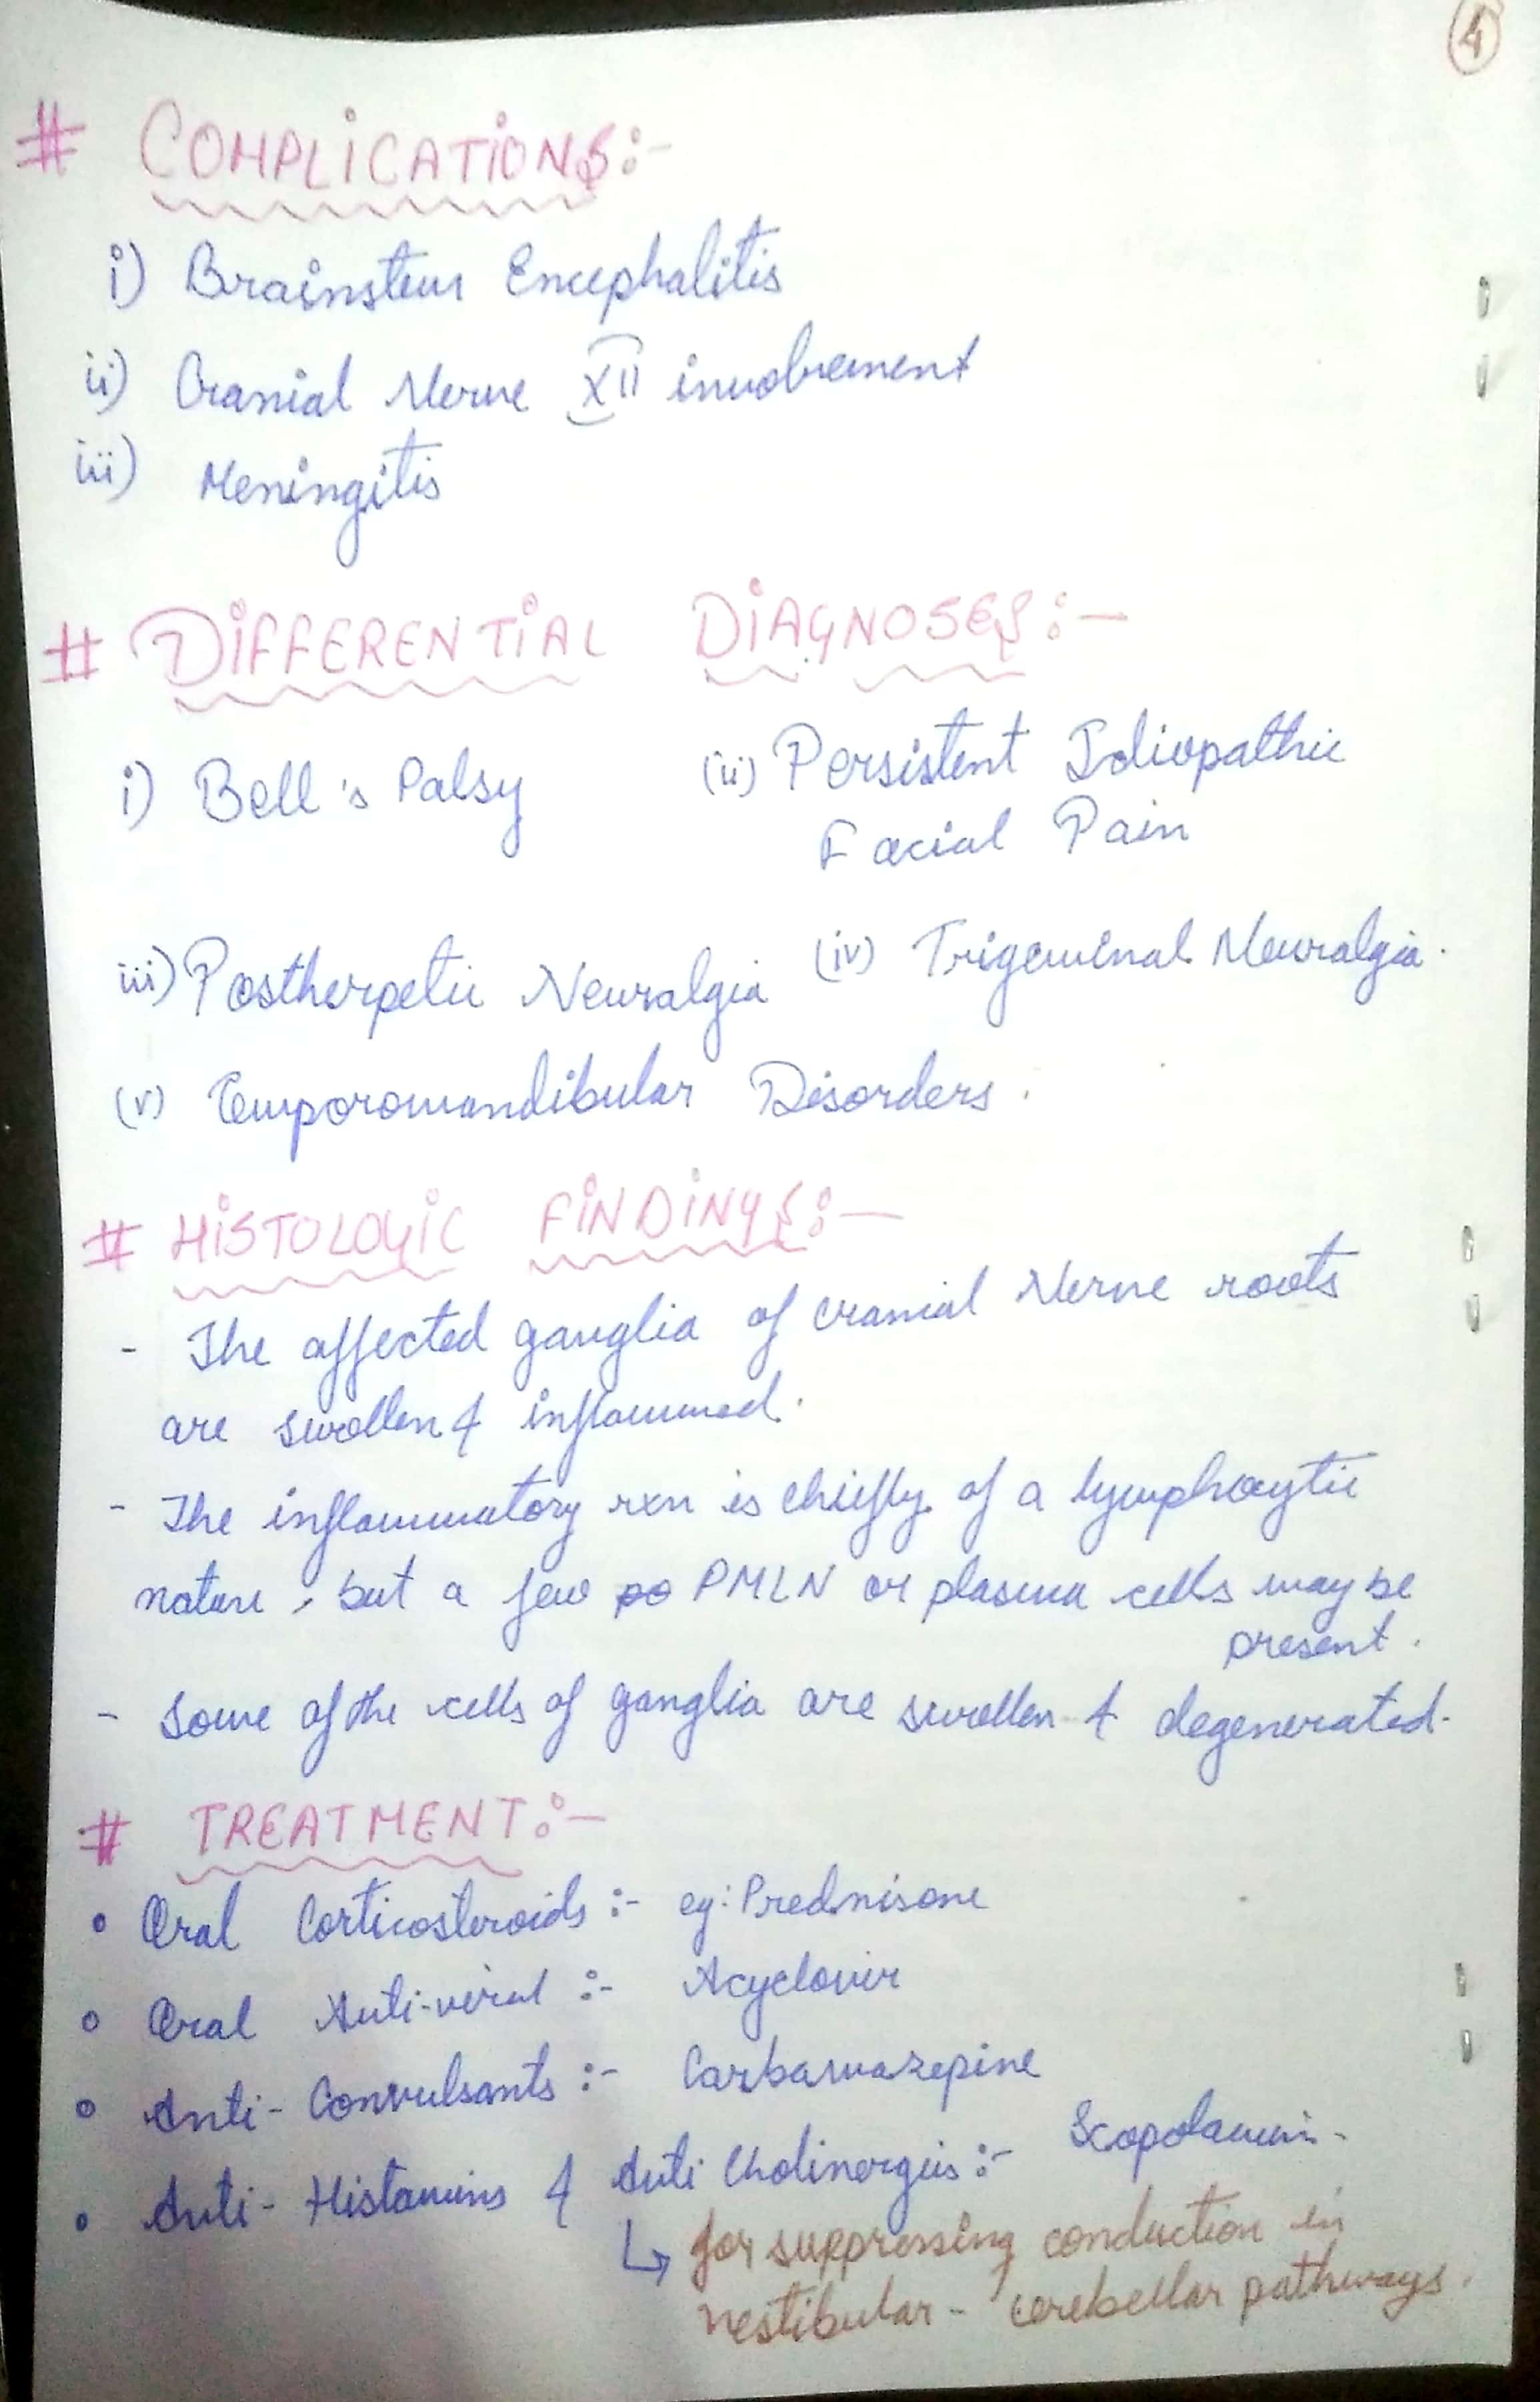 4
# COMPLICATIONS:-
i) Brainstem Encephalitis
ii) Cranial Nerve XII involvement
iii) Meningitis
# DIFFERENTIAL DIAGNOSES:-
i) Bell's Palsy (ii) Persistent Idiopathic
Facial Pain
iii) Postherpetic Neuralgia (iv) Trigeminal Neuralgia.
(v) Temporomandibular Disorders.
# HISTOLOGIC FINDINGS:-
- The affected ganglia of cranial Nerve roots
are swollen & inflammed.
- The inflammatory rxn is chiefly of a lymphocytic
nature, but a few PMLN or plasma cells may be
present.
- Some of the cells of ganglia are swollen & degenerated.
# TREATMENT:-
• Oral Corticosteroids :- eg: Prednisone
• Oral Anti-viral :- Acyclovir
• Anti-Convulsants :- Carbamazepine
• Anti-Histamins & Anti Cholinergics :- Scopolamin-
↳ for suppressing conduction in
vestibular - cerebellar pathways.